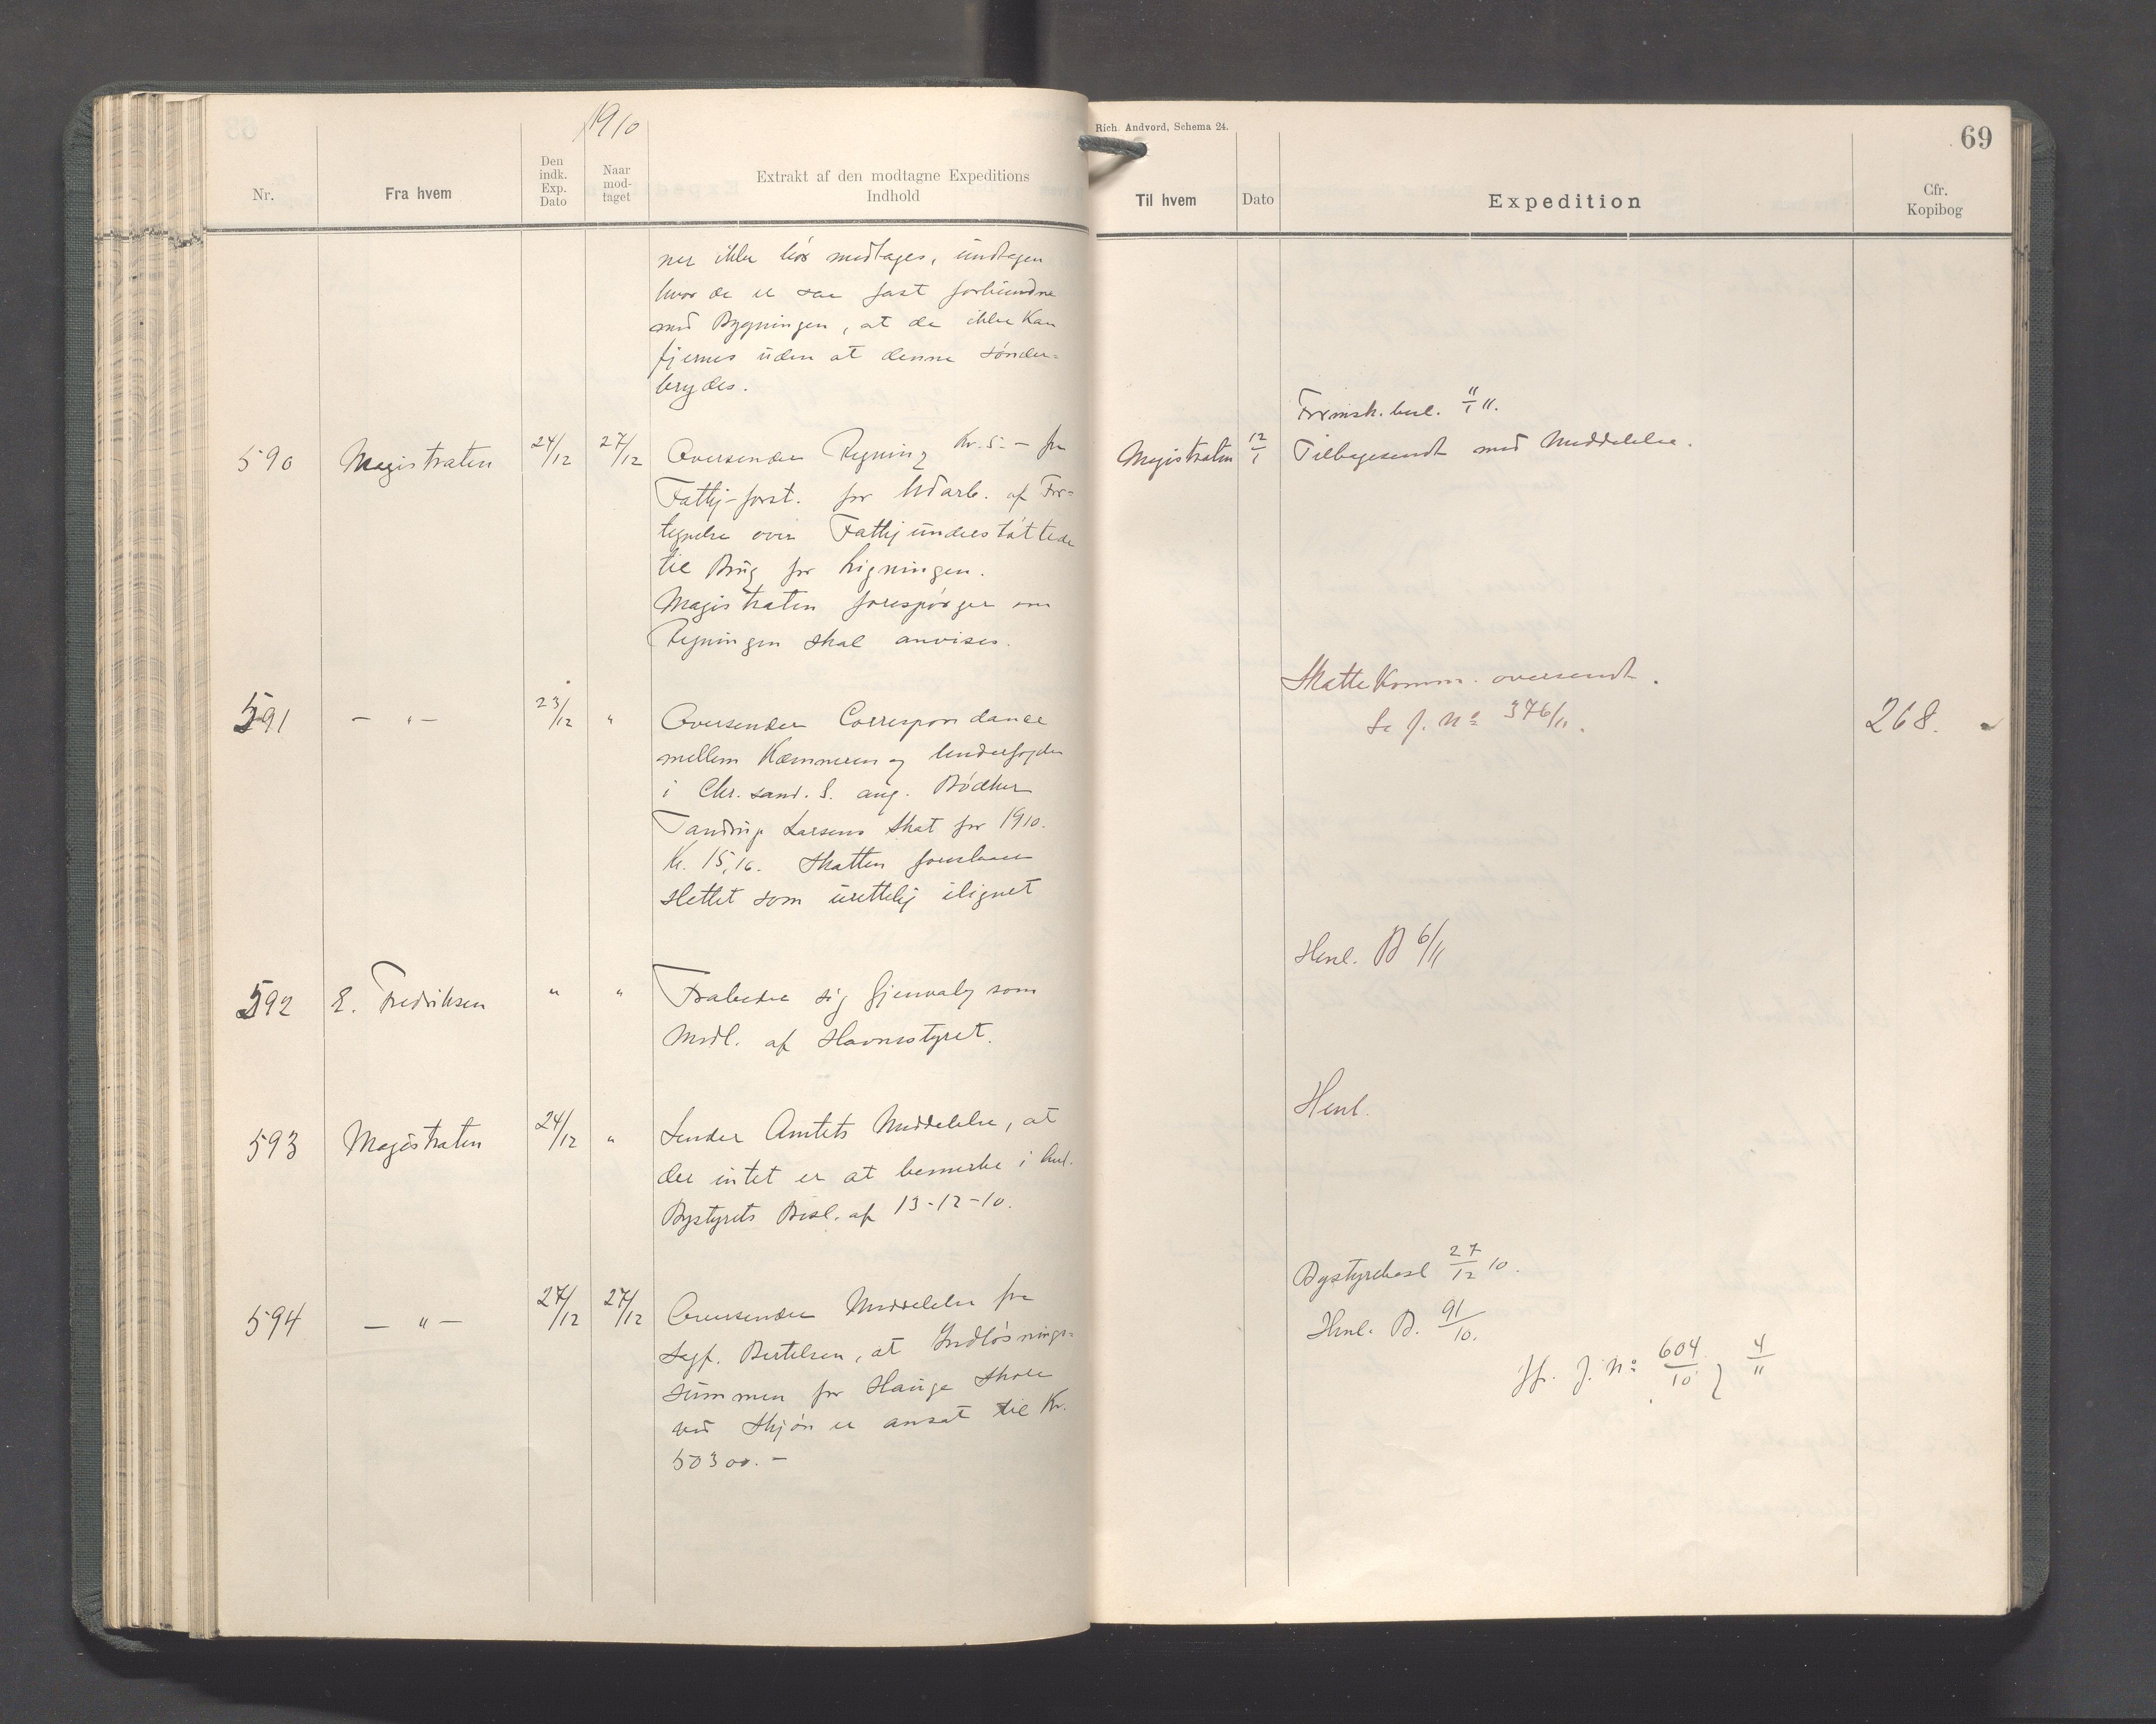 1910
Nr.
Fra hvem
Den indk. Exp. Dato
Naar mod- taget
Extrakt af den modtagne Expeditions Indhold
ner ikke bør medtages, undtagen
hvor de er saa fast forbundne
med Bygningen, at de ikke kan
fjernes uden at denne sønder-
brydes.
590 Magistraten 24/12 27/12 Oversender Regning Kr. 5.- fra
Fattig-forst. for Udarb. af For-
tegnelse over Fattigunderstøttede
til Brug for Ligningen.
Magistraten forespørger om
Regningen skal anvises.
591 - " - 23/12 " Oversender Correspondance
mellem Kæmneren og Underfogden
i Chr.sand. S. ang. Bødker
Tandrup Larsens Skat for 1910.
Kr. 15,16. Skatten foreslaaes
slettet som urettelig ilignet
592 E. Fredriksen " " Frabeder sig Gjenvalg som
Medl. af Havnestyret.
593 Magistraten 24/12 " Sender Amtets Meddelelse, at
der intet er at bemerke i Anl.
Bystyrets Besl. af 13-12-10.
594 - " - 27/12 27/12 Oversender Meddelelse fra
Sagf. Bertelsen, at Indløsnings-
summen for Hauge Skole
ved Skjøn er ansat til Kr.
50300.-
Rich. Andvord, Schema 24.
69
Til hvem
Dato
Expedition
Cfr. Kopibog
Formsk. besl. 11/1 11.
Magistraten 12/1 Tilbagesendt med Meddelelse.
Skatte Komm. oversendt.
Se J. No 376/11. 268.
Henl. B 6/11
Henl.
Bystyrebesl 27/12 10.
Henl. B. 91/10.
Jfr. J. No 604/10 } 4/11